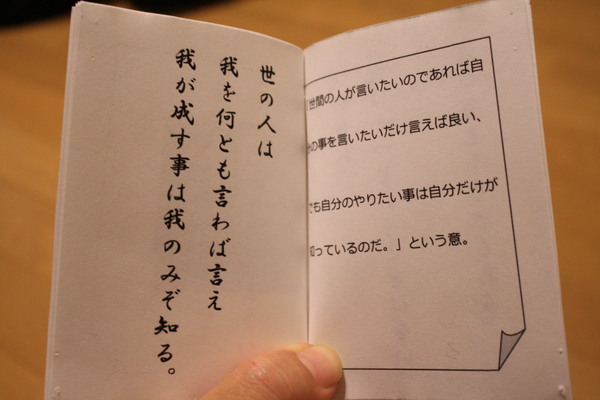 世の人は
我を何とも言わば言え
我が成す事は我のみぞ知る。
世間の人が言いたいのであれば自
の事を言いたいだけ言えば良い、
でも自分のやりたい事は自分だけが
知っているのだ。」という意。